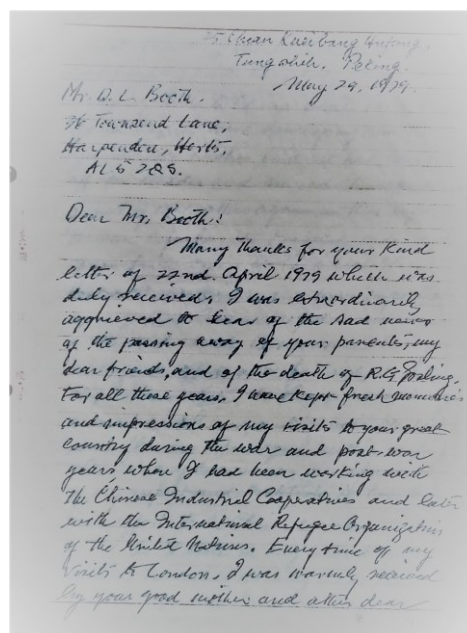 25, Chuan Kuei bang Hutung,
Tungwhih. Peking.
May 29, 1979.
Mr. D. L. Booth.
Townsend Lane,
Harpenden, Herts.
AL5 2QS.
Dear Mr. Booth:
Many thanks for your kind
letter of 22nd. April 1979 which was
duly received. I was extraordinarily
aggrieved to hear of the sad news
of the passing away of your parents, my
dear friends, and of the death of R.G.
For all these years, I have kept fresh memories
and impressions of my visits to your great
country during the war and post-war
years when I had been working with
the Chinese Industrial Cooperatives and later
with the International Refugee Organization
of the United Nations. Every time of my
visits to London, I was warmly received
by your good mother and other dear